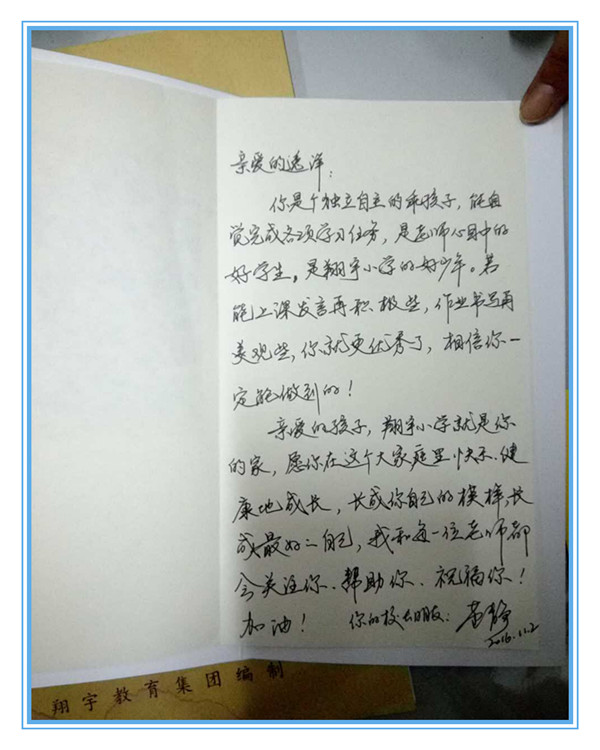 亲爱的逸洋：
你是个独立自主的乖孩子，能自
觉完成各项学习任务，是老师心目中的
好学生，是翔宇小学的好少年。若
能上课发言再积极些，作业书写再
美观些，你就更优秀了，相信你一
定能做到的！
亲爱的孩子，翔宇小学就是你
的家，愿你在这个大家庭里快乐、健
康地成长，长成你自己的模样，长
成最好的自己，我和每一位老师都
会关注你、帮助你、祝福你！
加油！ 你的校长朋友：
2016.11.2
翔宇教育集团编制